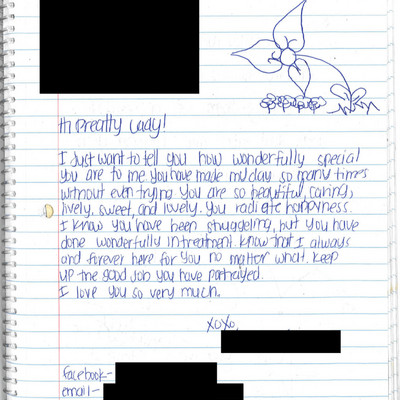 Hi Preatty Lady!
I Just want to tell you how wonderfully special
you are to me you have made my day so many times
without even trying. You are so beautiful, caring,
lively, sweet, and lovely. You radiate happyness.
I know you have been struggeling, but you have
done wonderfully in treatment. Know that I always
and forever here for you no matter what. Keep
up the good job you have portraiyed.
I love you so very much.
XoXo,
facebook-
email-